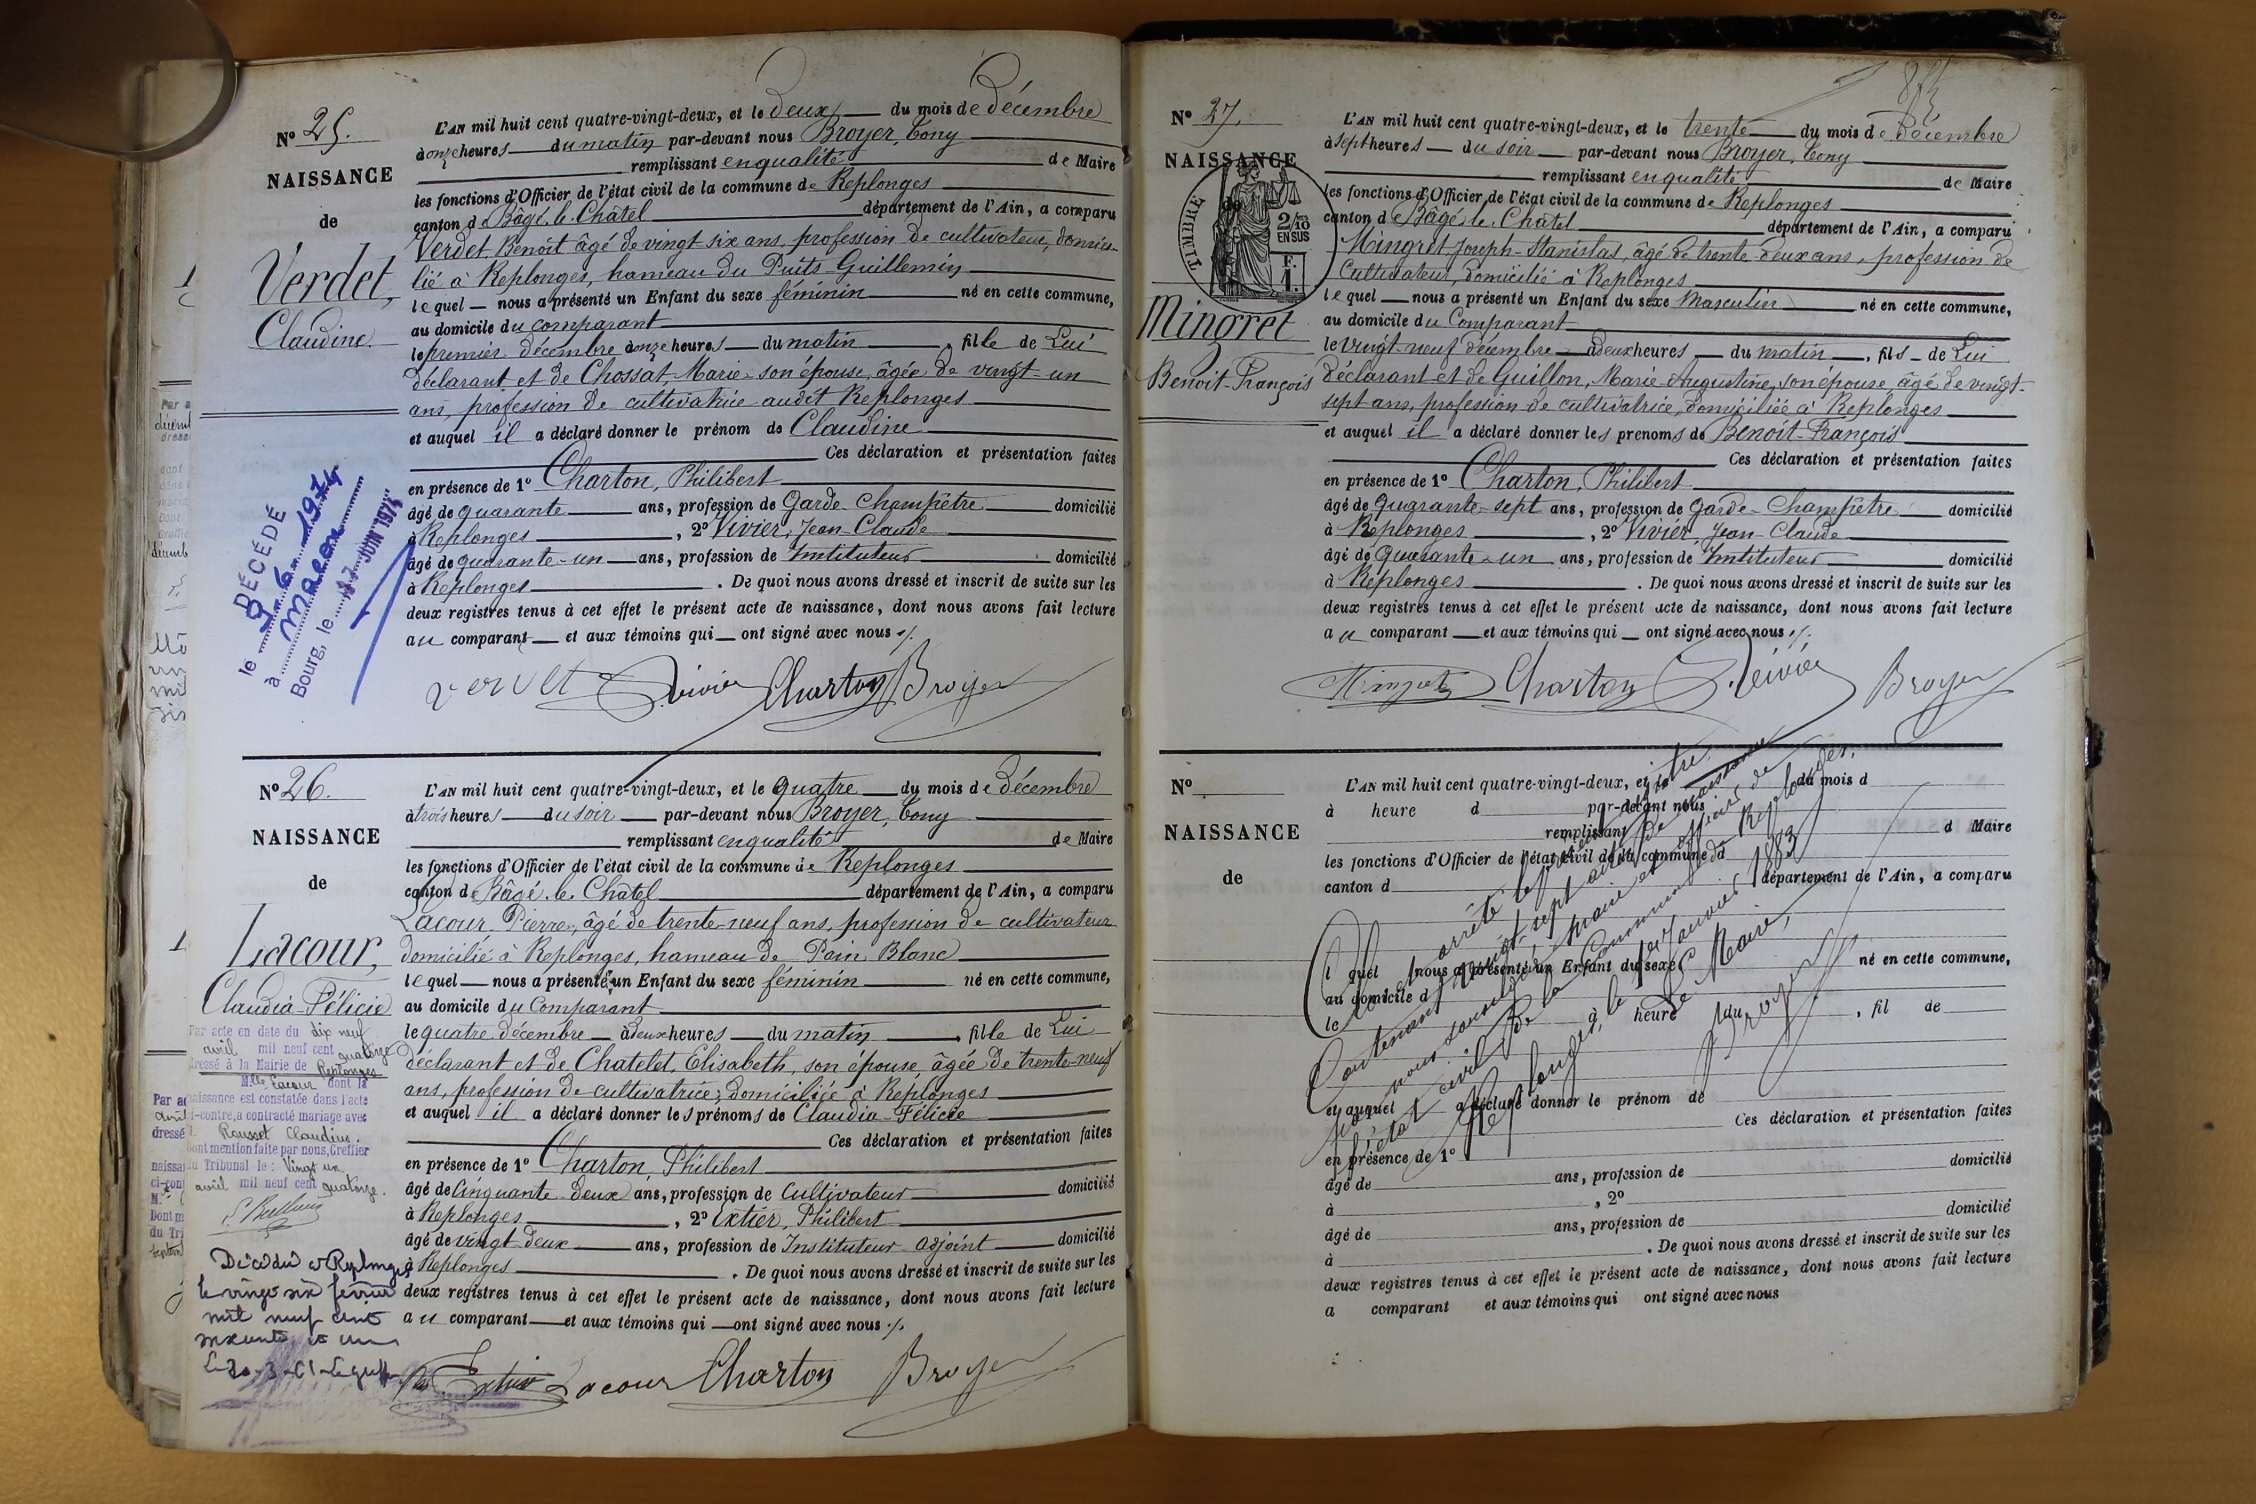 N° 25.
NAISSANCE
de
Verdet,
Claudine
L'AN mil huit cent quatre-vingt-deux, et le deux du mois de décembre
à onze heures du matin par-devant nous Broyer, Tony
remplissant en qualité de Maire
les fonctions d'Officier de l'état civil de la commune de Replonges
canton de Bâgé-le-Châtel département de l'Ain, a comparu
Verdet, Benoît âgé de vingt six ans, profession de cultivateur, domici-
lié à Replonges, hameau du Puits Guillemin
lequel nous a présenté un Enfant du sexe féminin né en cette commune,
au domicile du comparant
le premier décembre à onze heures du matin, fille de Lui
déclarant et de Chossat, Marie son épouse, âgée de vingt-un
ans, profession de cultivatrice audit Replonges
et auquel il a déclaré donner le prénom de Claudine
Ces déclaration et présentation faites
en présence de 1° Charton, Philibert
âgé de quarante ans, profession de Garde-Champêtre domicilié
à Replonges, 2° Vivier, Jean-Claude
âgé de quarante-un ans, profession de Instituteur domicilié
à Replonges. De quoi nous avons dressé et inscrit de suite sur les
deux registres tenus à cet effet le présent acte de naissance, dont nous avons fait lecture
au comparant et aux témoins qui ont signé avec nous ./.
DÉCÉDÉ
le 9-6-1974
à Macon
Bourg, le JUIN 1974
Verdet Vivier Charton Broyer
N° 26.
NAISSANCE
de
Lacour,
Claudia-Félicie
L'AN mil huit cent quatre-vingt-deux, et le quatre du mois de décembre
à trois heures du soir par-devant nous Broyer, Tony
remplissant en qualité de Maire
les fonctions d'Officier de l'état civil de la commune de Replonges
canton de Bâgé-le-Châtel département de l'Ain, a comparu
Lacour, Pierre, âgé de trente-neuf ans, profession de cultivateur
domicilié à Replonges, hameau de Pain Blanc
lequel nous a présenté un Enfant du sexe féminin né en cette commune,
au domicile du Comparant
le quatre décembre à deux heures du matin, fille de Lui
déclarant et de Chatelet, Elisabeth, son épouse, âgée de trente-neuf
ans, profession de cultivatrice, domiciliée à Replonges
et auquel il a déclaré donner les prénoms de Claudia-Félicie
Ces déclaration et présentation faites
en présence de 1° Charton, Philibert
âgé de Cinquante deux ans, profession de Cultivateur domicilié
à Replonges, 2° Extier, Philibert
âgé de vingt-deux ans, profession de Instituteur-adjoint domicilié
à Replonges. De quoi nous avons dressé et inscrit de suite sur les
deux registres tenus à cet effet le présent acte de naissance, dont nous avons fait lecture
au comparant et aux témoins qui ont signé avec nous ./.
Par acte en date du dix neuf
avril mil neuf cent quatorze
dressé à la Mairie de Replonges
Mlle Lacour dont la
naissance est constatée dans l'acte
ci-contre, a contracté mariage avec
Rousset Claudius.
Dont mention faite par nous, Greffier
du Tribunal le: Vingt un
avril mil neuf cent quatorze.
Décédée à Replonges
le vingt six février
mil neuf cent
soixante et un
Lacour Charton Broyer
N° 27.
NAISSANCE
de
TIMBRE
2/10
EN SUS
F.
1.
Mingret
Benoit-François
L'AN mil huit cent quatre-vingt-deux, et le trente du mois de Décembre
à sept heures du soir par-devant nous Broyer, Tony
remplissant en qualité de Maire
les fonctions d'Officier de l'état civil de la commune de Replonges
canton de Bâgé-le-Châtel département de l'Ain, a comparu
Mingret Joseph-Stanislas, âgé de trente-deux ans, profession de
Cultivateur, domicilié à Replonges
lequel nous a présenté un Enfant du sexe Masculin né en cette commune,
au domicile du Comparant
le vingt-neuf décembre à deux heures du matin, fils de Lui
déclarant et de Guillon, Marie-Augustine, son épouse, âgé de vingt-
sept ans, profession de cultivatrice, domiciliée à Replonges
et auquel il a déclaré donner les prenoms de Benoit-François
Ces déclaration et présentation faites
en présence de 1° Charton, Philibert
âgé de quarante-sept ans, profession de Garde-Champêtre domicilié
à Replonges, 2° Vivier, Jean-Claude
âgé de quarante-un ans, profession de Instituteur domicilié
à Replonges. De quoi nous avons dressé et inscrit de suite sur les
deux registres tenus à cet effet le présent acte de naissance, dont nous avons fait lecture
au comparant et aux témoins qui ont signé avec nous ./.
Mingret Charton Vivier Broyer
N°
NAISSANCE
de
L'AN mil huit cent quatre-vingt-deux, et le du mois d
à heure d par-devant nous
remplissant d Maire
les fonctions d'Officier de l'état civil de la commune d
canton d département de l'Ain, a comparu
l quel nous a présenté un Enfant du sexe né en cette commune,
au domicile d
le à heure du, fil de
et auquel a déclaré donner le prénom de
Ces déclaration et présentation faites
en présence de 1°
âgé de ans, profession de domicilié
à, 2°
âgé de ans, profession de domicilié
à. De quoi nous avons dressé et inscrit de suite sur les
deux registres tenus à cet effet le présent acte de naissance, dont nous avons fait lecture
a comparant et aux témoins qui ont signé avec nous
Clos et arrêté le présent registre
Contenant vingt-sept actes de naissance
par nous soussigné Maire et officier de
l'état civil de la Commune de Replonges,
Replonges, le 1er Janvier 1883
Le Maire,
Broyer